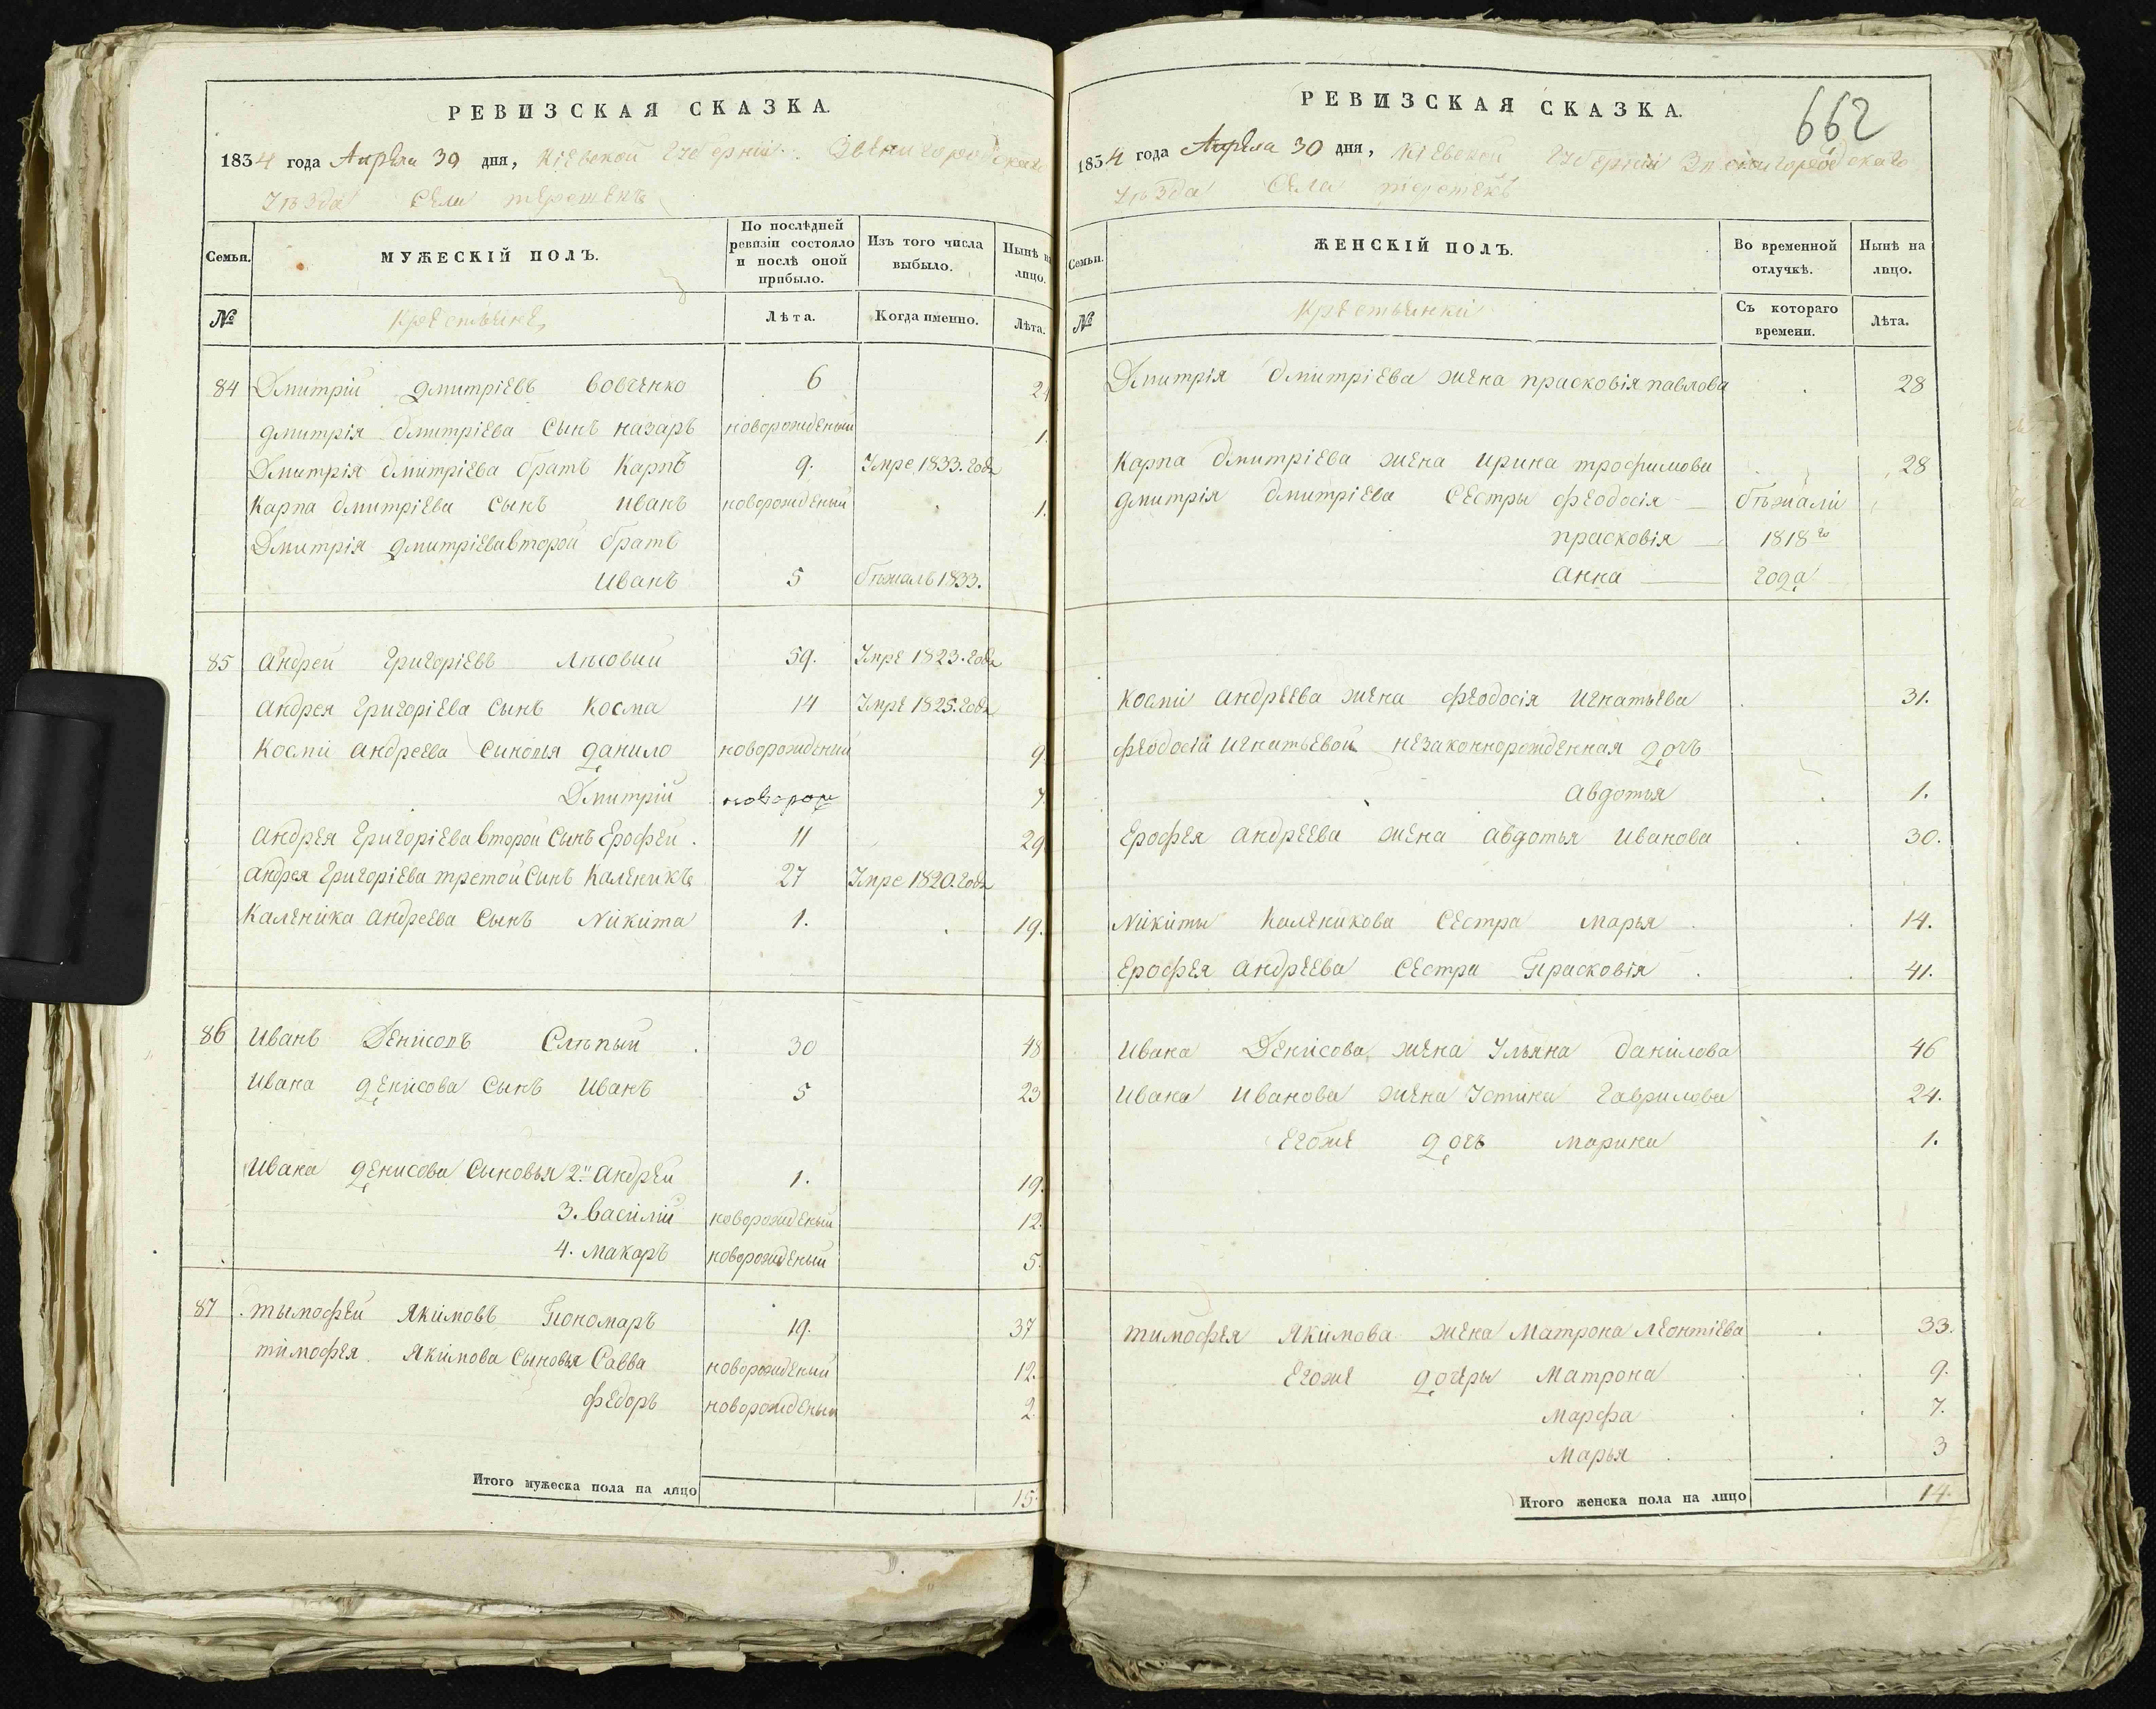 РЕВИЗСКАЯ СКАЗКА.
1834 года Апреля 30 дня, Кіевской Губерніи Звенигородскаго
Уѣзда Села
Семьи. МУЖЕСКІЙ ПОЛЪ. По послѣдней ревизіи состояло и послѣ оной прибыло. Изъ того числа выбыло. Нынѣ на лицо.
№ Крестьяне Лѣта. Когда именно. Лѣта.
84 Дмитрій дмитріевъ вовченко 6 24
дмитрія дмитріева сынъ назаръ новорожденый 1.
Дмитрія дмитріева братъ Карпъ 9. Умре 1833. года
Карпа дмитріева сынъ иванъ новорожденый 1.
Дмитрія дмитріева второй братъ
иванъ 5 бѣжалъ 1833.
85 андрей григоріевъ 59. Умре 1823. года
андрея григоріева сынъ Косма 14 Умре 1825. года
Косми андреева синовья данило новорожденый 9
Дмитрій новорож 7
андрея григоріева второй сынъ Ерофей. 11 29
андрея григоріева третой синъ Каленикъ 27 Умре 1820. года
Каленика андреева сынъ Никита 1. 19.
86 иванъ Денисовъ Слѣпый 30 48
ивана денисова сынъ иванъ 5 23
ивана денисова сыновья 2й андрей 1. 19.
3. василій новорожденый 12.
4. макаръ новорожденый 5.
87 тымофей Якимовъ Пономаръ 19. 37
тимофея Якимова сыновья Савва новорожденый 12.
федоръ новорожденый 2.
Итого мужеска пола на лицо 15.
662
РЕВИЗСКАЯ СКАЗКА.
1834 года Апреля 30 дня, Кіевской Губерніи Звенигородскаго
Уѣзда Села
Семьи. ЖЕНСКІЙ ПОЛЪ. Во временной отлучкѣ. Нынѣ на лицо.
№ Крестьянки Съ котораго времени. Лѣта.
Дмитрія дмитріева жена прасковія павлова 28
Карпа дмитріева жена ирина трофимова 28
дмитрія дмитріева сестры феодосія бѣжали
прасковія 1818го
анна года
косми андреева жена феодосія игнатьева 31.
феодосіи игнатьевой незаконнорожденная дочъ
авдотья 1.
Ерофея андреева жена авдотья иванова 30.
Никиты Каленикова сестра марья 14.
Ерофея андреева сестра Прасковія 41.
ивана Денисова жена Ульяна данилова 46
ивана иванова жена Устина гаврилова 24.
Егоже дочъ марина 1.
тимофея Якимова жена Матрона леонтіева 33.
Егоже дочеры Матрона 9.
марфа 7.
марья 3
Итого женска пола на лицо 14.